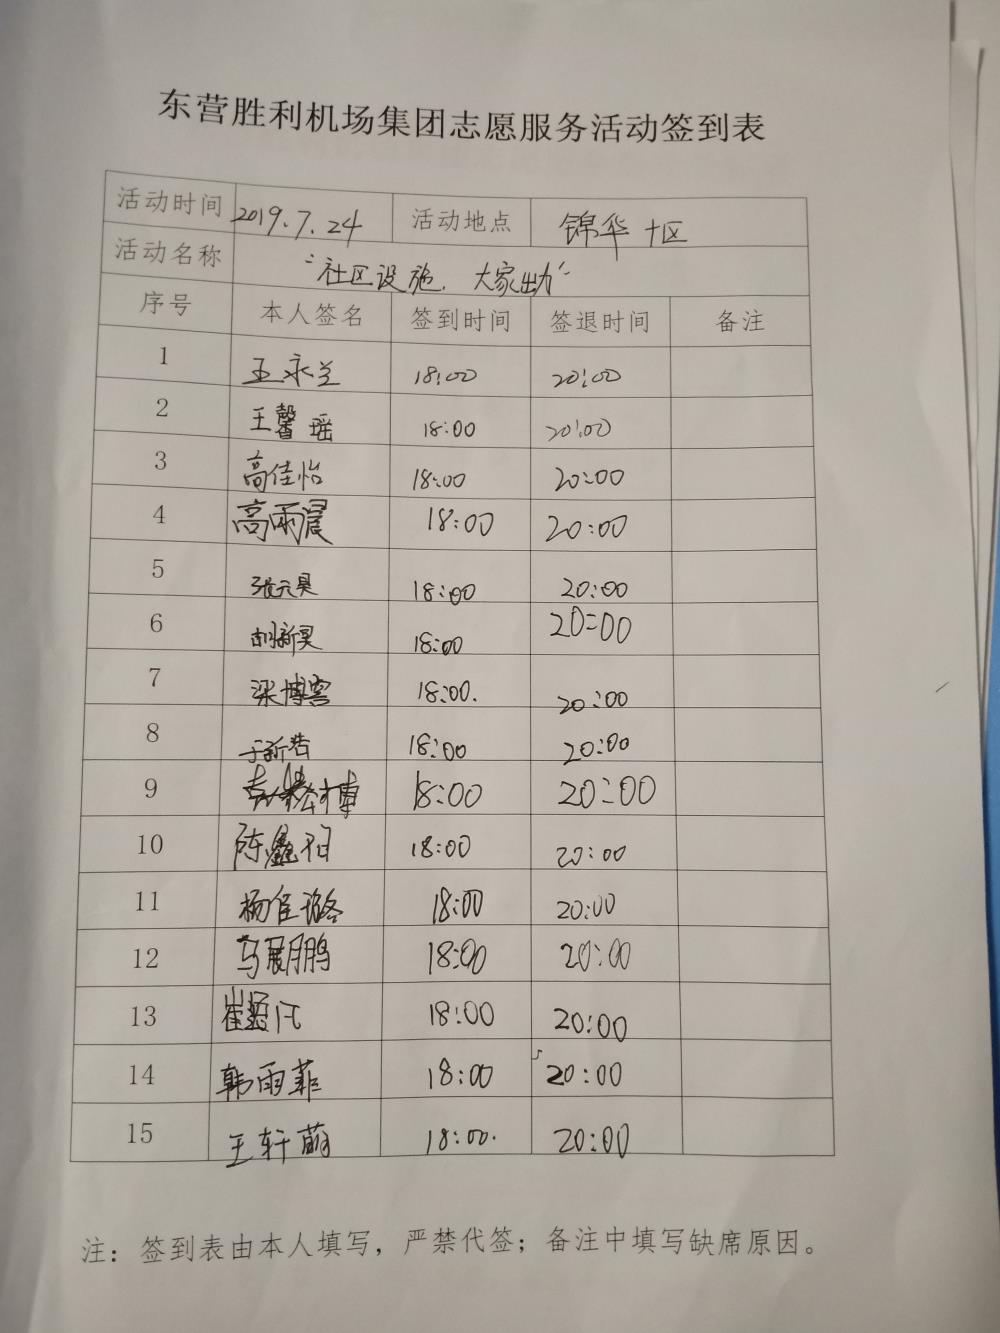 东营胜利机场集团志愿服务活动签到表
活动时间 2019.7.24 活动地点 锦华十区
活动名称 “社区设施、大家出力”
序号 本人签名 签到时间 签退时间 备注
1 王永兰 18:00 20:00
2 王馨瑶 18:00 20:00
3 高佳怡 18:00 20:00
4 高雨晨 18:00 20:00
5 张元昊 18:00 20:00
6 胡新昊 18:00 20:00
7 梁博 18:00. 20:00
8 于新浩 18:00 20:00
9 18:00 20:00
10 陈鑫 18:00 20:00
11 杨佳璐 18:00 20:00
12 马展鹏 18:00 20:00
13 崔 18:00 20:00
14 韩雨菲 18:00 20:00
15 王轩萌 18:00. 20:00
注：签到表由本人填写，严禁代签；备注中填写缺席原因。